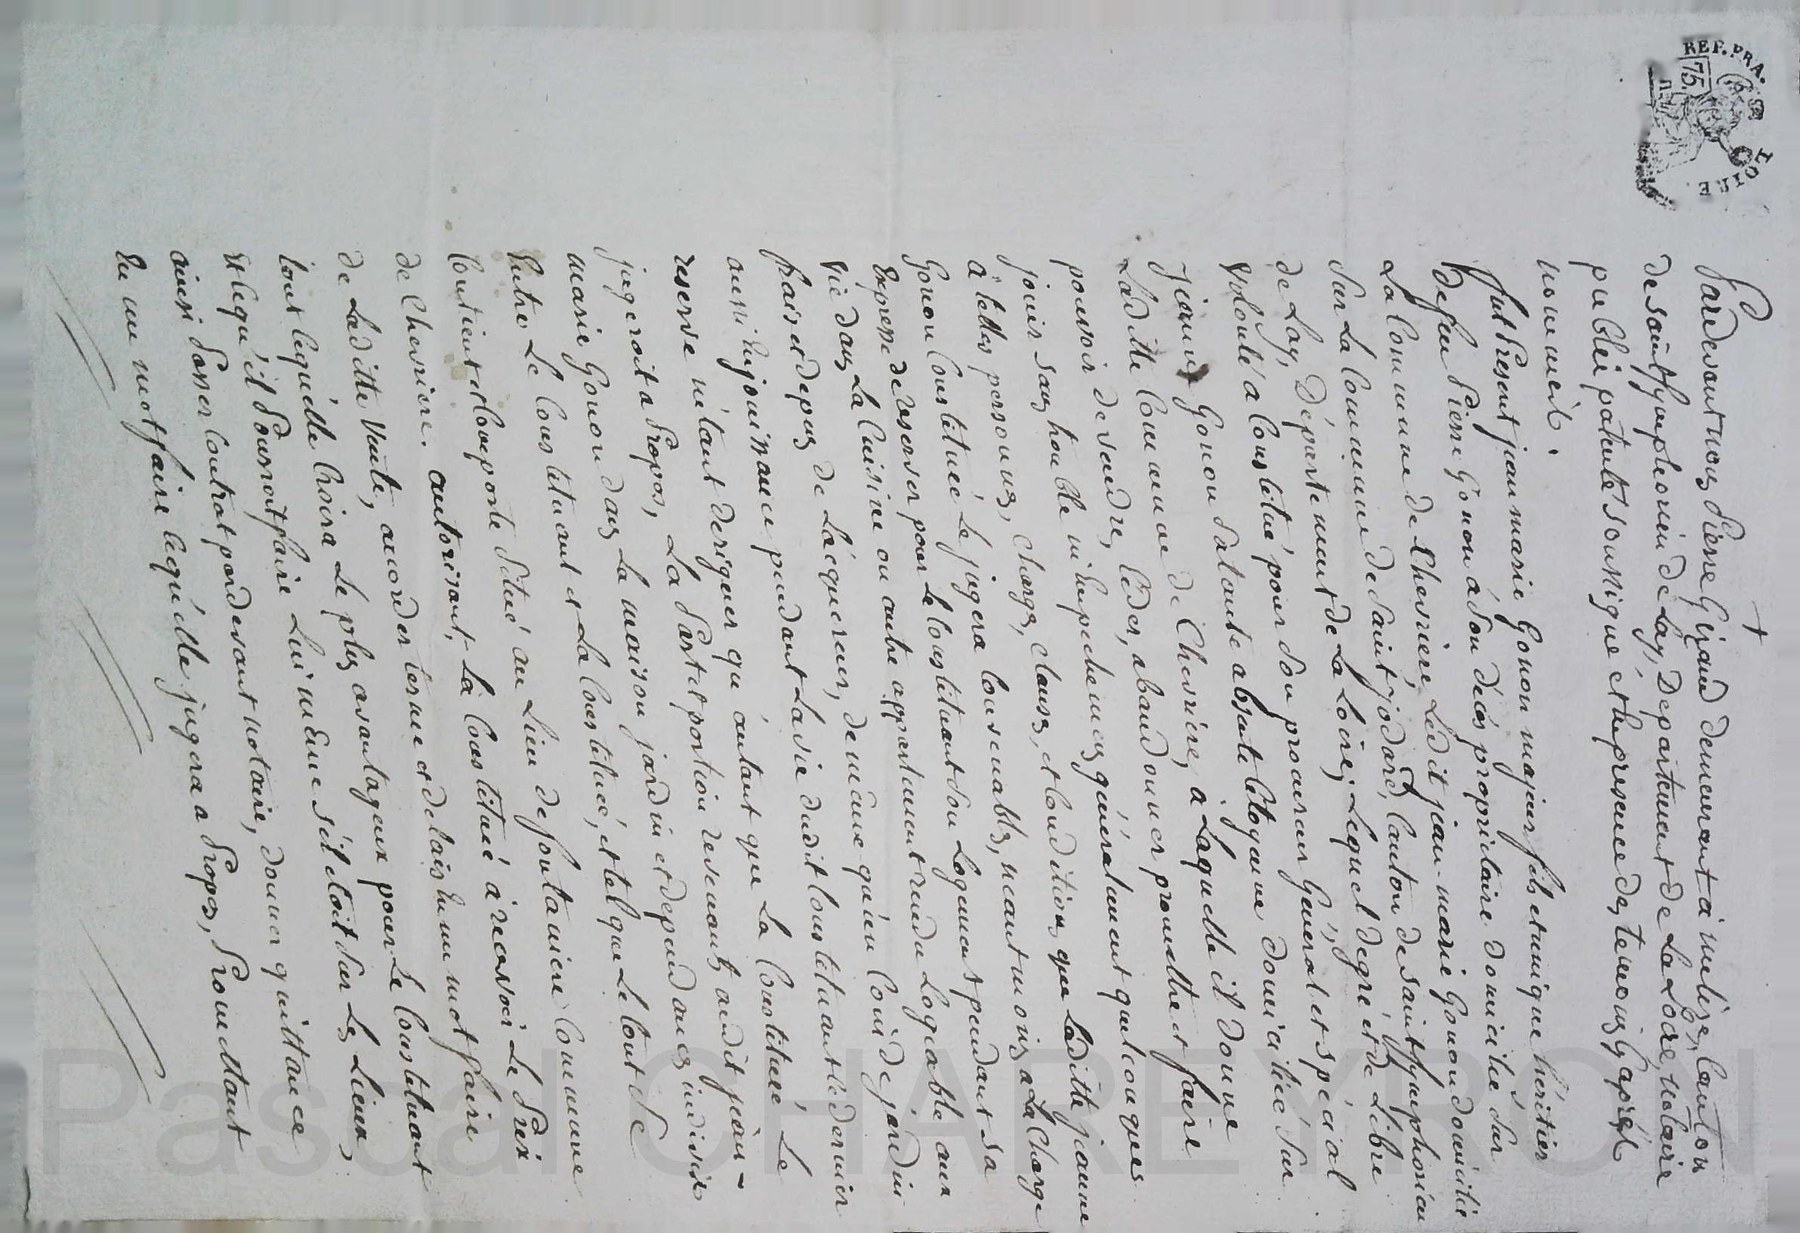 REP. FRA.
75
LOIRE
Pardevant nous Pierre Giraud demeurant à nulize, Canton
de saint symphorien de Lay, Département de La Loire, notaire
public patenté soussigné et En presence des temoins Cy après
nommés.
fut Present jean marie Gonon majeur fils et unique héritier
de feu Pierre Gonon à son décès propriétaire domicilié Sur
La Commune de Chevriere, Ledit jean-marie Gonon domicilié
Sur La Commune de Saint jodard, Canton de saint symphorien
de Lay, Département de La Loire; Lequel de gré et de Libre
volonté a Constitué pour Son procureur Général et spécial
jeanne Gonon Sa tante absente domiciliée Sur
Laditte Commune de Chevriere, à Laquelle il donne
pouvoir de vendre, Céder, abandonner promettre et faire
jouir sans trouble ni Empechemens généralement quelconques
à telles personnes, charges, clauses, et Conditions que Laditte jeanne
Gonon Constituée Le jugera Convenable, neantmoins a La Charge
Expresse de reserver pour Le Constituant Son Logement pendant sa
vie dans La Cuisine ou autre appartement rendu Logeable aux
frais et depens de L'acquereur, de même qu'un Coin de jardin
aussi En jouissance pendant La vie dudit Constituant Ce dernier
reserve n'étant désigner qu'autant que La Constituée Le
jugeroit a Propos, La Part et portion revenant audit jean-
marie Gonon dans La maison jardin et dependances indivis
Entre Le Constituant et La Constituée, et tel que Le tout Se
Contient et Comporte Situé au Lieu de fontaniere Commune
de Chevriere. autorisant La Constituée à recevoir Le Prix
de Laditte Vente, accorder terme et delais En un mot faire
tout Ce qu'elle Croira Le plus avantageux pour Le Constituant
Et Ce qu'il Pourroit faire Lui même s'il étoit Sur Les Lieux,
ainsi Passer Contrat pardevant notaire, donner quittance
En un mot faire Ce qu'elle jugera a Propos, Promettant
Pascal CHAREYRON